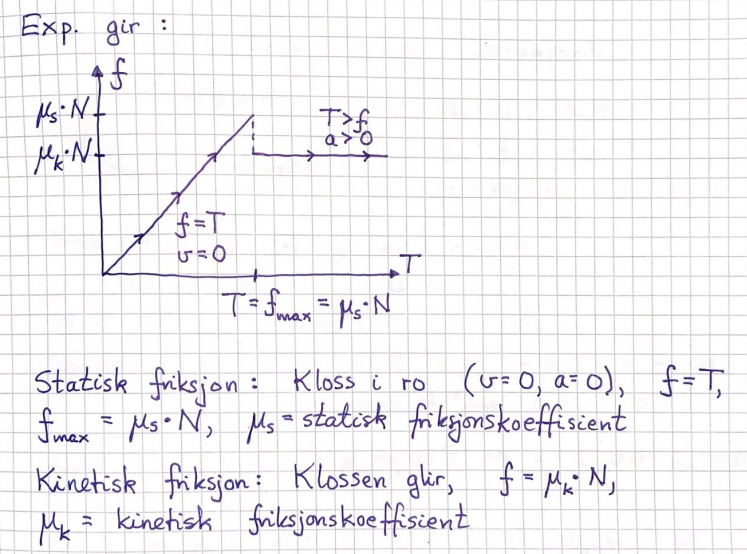 Exp. gir :
f
μs·N
μk·N
T>f
a>0
f=T
v=0
T
T = fmax = μs·N
Statisk friksjon : Kloss i ro (v=0, a=0), f=T,
fmax = μs·N, μs = statisk friksjonskoeffisient
Kinetisk friksjon : Klossen glir, f = μk·N,
μk = kinetisk friksjonskoeffisient